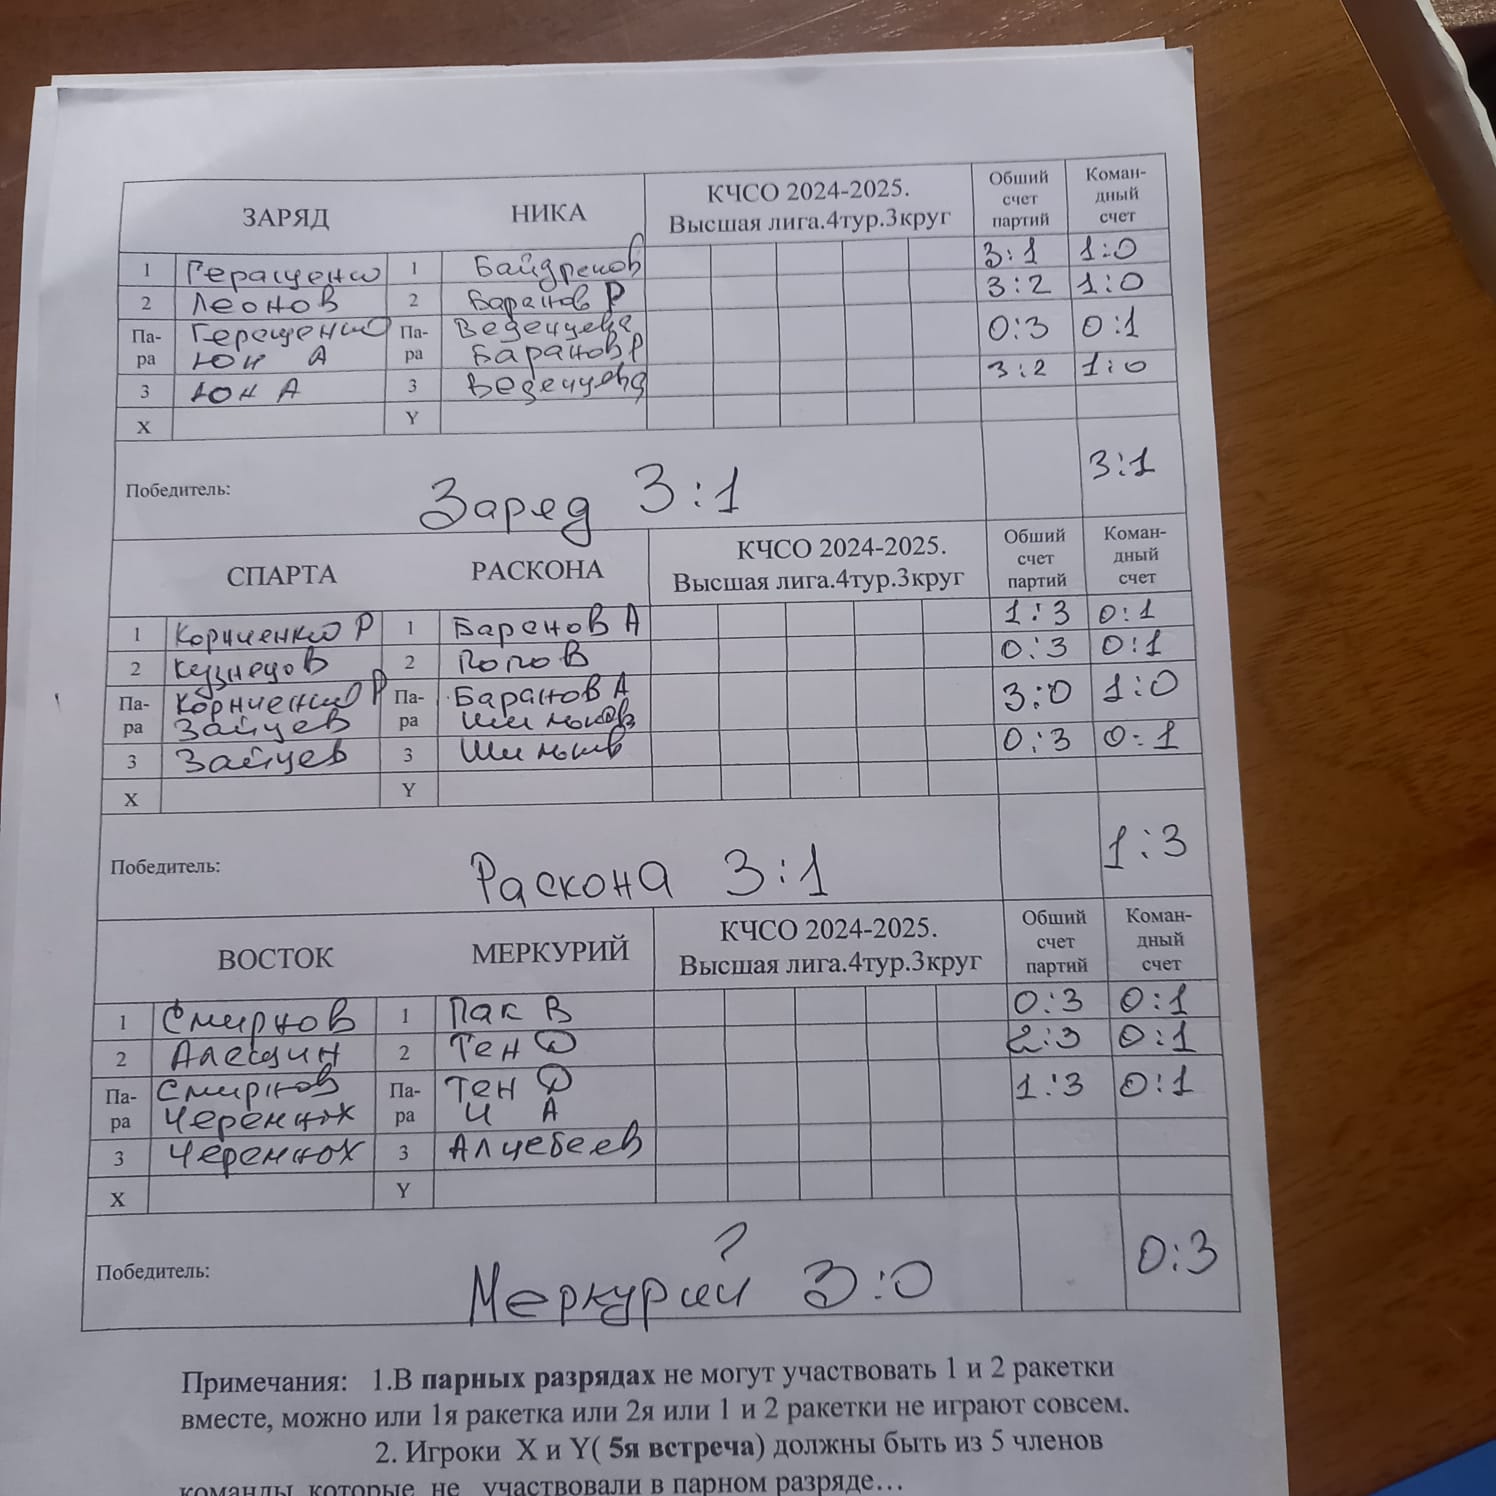 ЗАРЯД НИКА КЧСО 2024-2025. Высшая лига.4тур.3круг Обший счет партий Коман-дный счет
1 Геращенко 1 Байдреков 3:1 1:0
2 Леонов 2 Баранов Р 3:2 1:0
Па-ра Геращенко Па-ра Веденцева 0:3 0:1
Юн А Баранов Р
3 Юн А 3 Веденцева 3:2 1:0
X Y
Победитель: Заряд 3:1 3:1
СПАРТА РАСКОНА КЧСО 2024-2025. Высшая лига.4тур.3круг Обший счет партий Коман-дный счет
1 Корниенко Р 1 Баранов А 1:3 0:1
2 Кузнецов 2 Попов 0:3 0:1
Па-ра Корниенко Р Па-ра Баранов А 3:0 1:0
Зайцев Шиньков
3 Зайцев 3 Шиньков 0:3 0:1
X Y
Победитель: Раскона 3:1 1:3
ВОСТОК МЕРКУРИЙ КЧСО 2024-2025. Высшая лига.4тур.3круг Обший счет партий Коман-дный счет
1 Смирнов 1 Пак В 0:3 0:1
2 Алещин 2 Тен Д 2:3 0:1
Па-ра Смирнов Па-ра Тен Д 1:3 0:1
Черемных Ц А
3 Черемных 3 Алцебеев
X Y
Победитель: Меркурий 3:0 0:3
Примечания: 1.В парных разрядах не могут участвовать 1 и 2 ракетки
вместе, можно или 1я ракетка или 2я или 1 и 2 ракетки не играют совсем.
2. Игроки X и Y( 5я встреча) должны быть из 5 членов
команды, которые не участвовали в парном разряде…